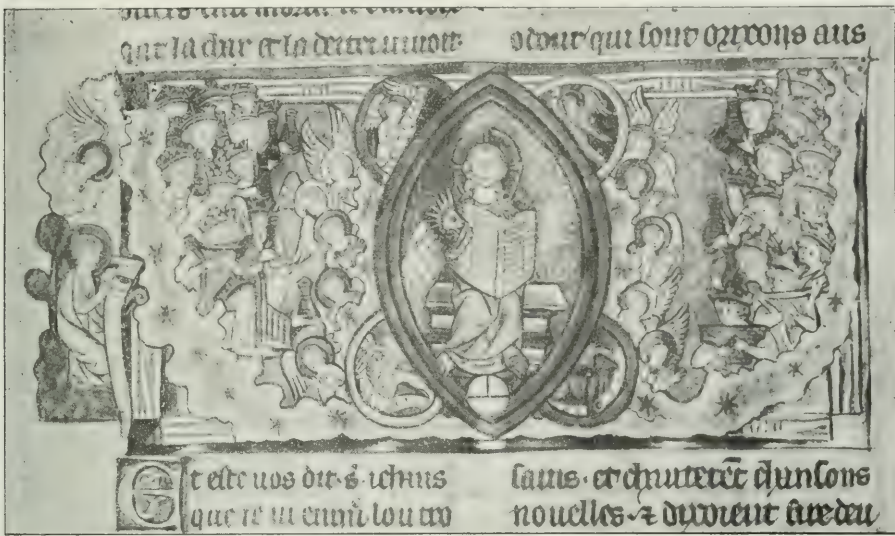 que la char et la
odour qui sont orisons aus
Et este uos dit · s · iehans
que ie ui enmi lou tro
sains · et chanterēt chansons
nouelles · ⁊ disoient sire deu